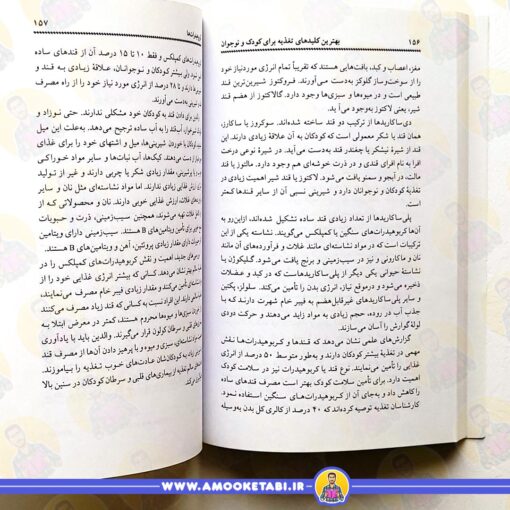 ۱۵۶
بهترین کلیدهای تغذیه برای کودک و نوجوان
مغز، اعصاب و کبد، بافت‌هایی هستند که تقریباً تمام انرژی موردنیاز خود
را از سوخت‌وساز گلوکز به‌دست می‌آورند. فروکتوز شیرین‌ترین قند
طبیعی است و در میوه‌ها و سبزی‌ها وجود دارد. گالاکتوز از هضم قند
شیر، یعنی لاکتوز به‌وجود می‌آید.
دی‌ساکاریدها از ترکیب دو قند ساخته شده‌اند. سوکروز یا ساکارز،
همان قند یا شکر معمولی است که کودکان به آن علاقهٔ زیادی دارند. این
قند از شیرهٔ نیشکر یا چغندر قند به‌دست می‌آید. در شیرهٔ نوعی درخت
افرا به نام افرای قندی و در ذرت خوشه‌ای هم وجود دارد. مالتوز یا قند
مالت، در آبجو و سمنو یافت می‌شود. لاکتوز یا قند شیر اهمیت زیادی در
تغذیهٔ کودکان و نوجوانان دارد و شیرینی نسبی آن از سایر قندها کمتر
است.
پلی‌ساکاریدها از تعداد زیادی قند ساده تشکیل شده‌اند، ازاین‌رو به
آن‌ها کربوهیدرات‌های سنگین یا کمپلکس می‌گویند. نشاسته یکی از این
ترکیبات است که در مواد نشاسته‌ای مانند غلات و فرآورده‌های آن مانند
نان و ماکارونی و نیز در سیب‌زمینی و برنج یافت می‌شود. گلیکوژن یا
نشاستهٔ حیوانی یکی دیگر از پلی‌ساکاریدهاست که در کبد و عضلات
ذخیره می‌شود و درموقع نیاز، انرژی بدن را تأمین می‌کند. سلولز، پکتین
و سایر پلی‌ساکاریدهای غیرقابل‌هضم به فیبر خام شهرت دارند که با
جذب آب در روده، حجم زیادی به مواد زاید می‌دهند و حرکت دودی
لولهٔ گوارش را آسان می‌سازند.
گزارش‌های علمی نشان می‌دهد که قندها و کربوهیدرات‌ها نقش
مهمی در تغذیهٔ بیشتر کودکان دارند و به‌طور متوسط ۵۰ درصد از انرژی
غذایی را تأمین می‌نمایند. نوع قند یا کربوهیدرات نیز در سلامت کودک
اهمیت دارد. برای تأمین سلامت کودک بهتر است مصرف قندهای ساده
را کاهش داد و به‌جای آن از کربوهیدرات‌های سنگین استفاده نمود.
کارشناسان تغذیه توصیه کرده‌اند که ۴۰ درصد از کالری کل بدن به‌وسیله
۱۵۷
کمپلکس و فقط ۱۰ تا ۱۵ درصد آن از قندهای ساده
ولی بیشتر کودکان و نوجوانان، علاقهٔ زیادی به قند و
دارند و تا ۲۸ درصد از انرژی مورد نیاز خود را از راه مصرف
به‌دست می‌آورند.
برای دادن قند به کودکان خود مشکلی ندارند. حتی نوزاد و
آب قند را به آب ساده ترجیح می‌دهد. به‌علت این میل
کودکان با خوردن شیرینی‌ها، میل و اشتهای خود را برای غذای
می‌دهند. کیک‌ها، آب نبات‌ها و سایر مواد خوراکی
شیرینی، مقدار زیادی شکر یا چربی دارند و غیر از تولید
ارزش غذایی زیادی ندارند. اما مواد نشاسته‌ای مثل نان و سایر
غلات، ارزش غذایی خوبی دارند. نان و محصولاتی که از
غلات تهیه می‌شوند، همچنین سیب‌زمینی، ذرت و حبوبات
دارای مقدار زیادی پروتئین، آهن و ویتامین‌های B هستند.
جدید اهمیت و نقش کربوهیدرات‌های کمپلکس را در
بهتر نشان می‌دهد. کسانی که بیشتر انرژی غذایی خود را از
تأمین می‌کنند و مقدار زیادی فیبر خام مصرف می‌نمایند،
این افراد نسبت به کسانی که قند زیاد مصرف می‌کنند
و میوه‌ها محروم هستند، کمتر در معرض ابتلا به
قلبی و سرطان کولون قرار می‌گیرند. والدین باید با یادآوری
نشاسته‌ای، سبزی و میوه و با پرهیز دادن آن‌ها از مصرف قند
زیاد به کودکان‌شان عادت‌های خوب تغذیه را بیاموزند.
تغذیه از بیماری‌های قلبی و سرطان کودکان در سنین بالا
WWW.AMOOKETABI.IR